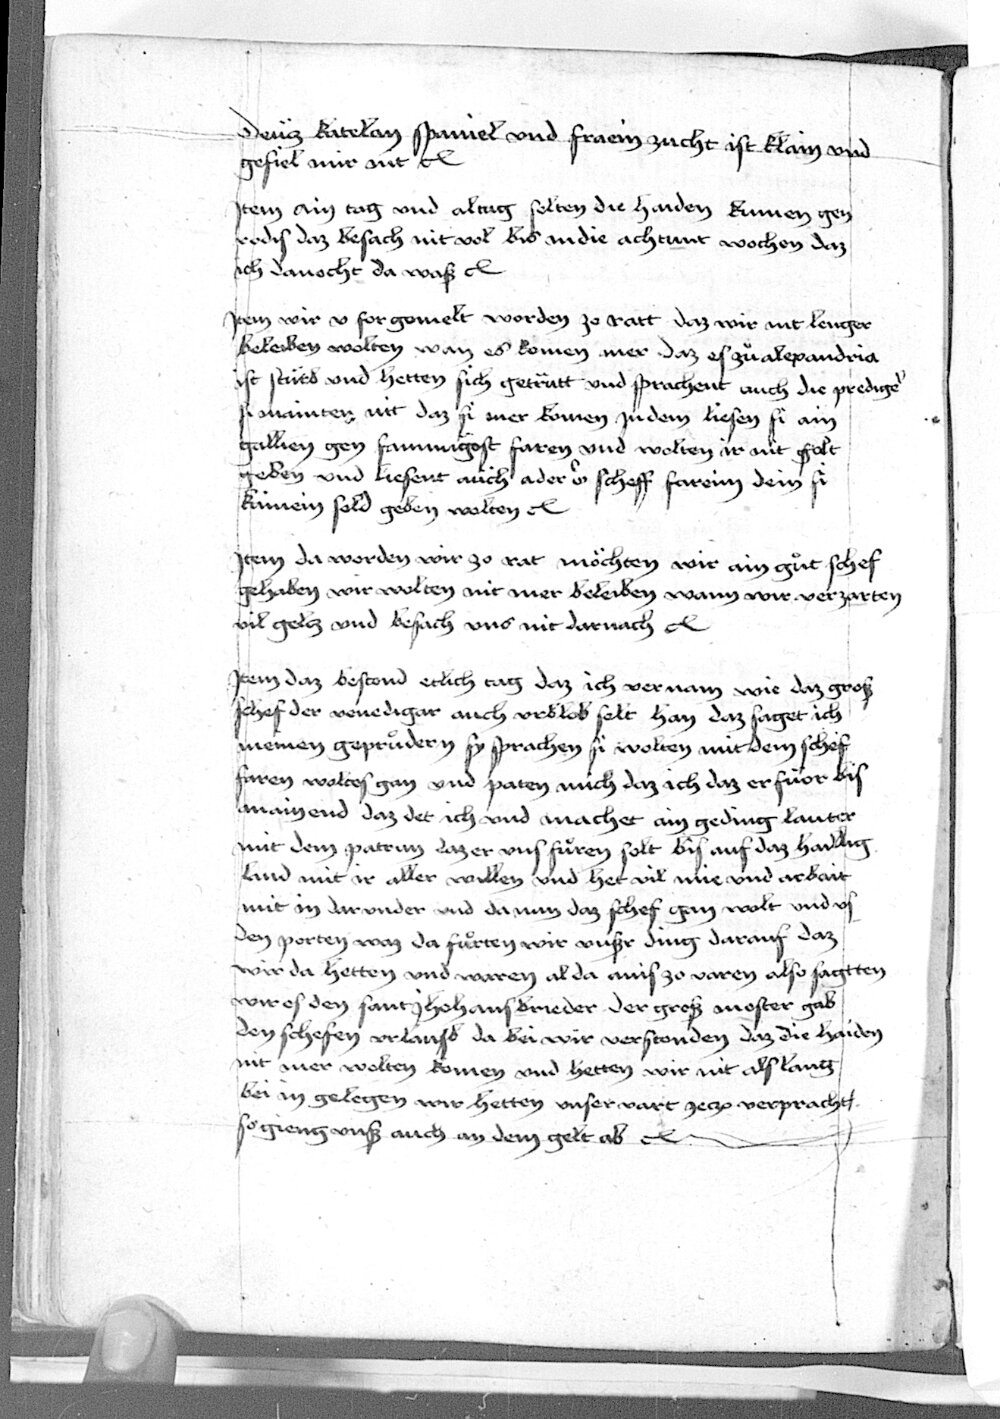 Deücz katelan spaniel vnd fraein zucht ist klain vnd
gefiel mir nit
Item ain tag vnd altag selten die haiden kumen gen
rodis daz besach nit vol bis in die achtunt wochen daz
ich danocht da waß
Item wir v for gomelt worden zo ratt daz wir nit lenger
beleiben wolten wan es komen mer daz es zů alexandria
ist stürb vnd hetten sich getrütt vnd sprachent auch die prediger
si mainten nit daz si mer komen In dem liesen si ain
gallien gen fammigost faren vnd wolten ir nit solt
geben vnd liesent auch ader scheff farein dein si
kainein sold geben wolten
Item da worden wir zo rat möchten wir ain gůt schef
gehaben wir wolten nit mer beleiben wann wir verzarten
vil geltz vnd besach vns nit darnach
Item daz bestond etlich tag daz ich vernam wie daz groß
schef der venedigar auch vrblob selt han daz saget ich
meinen geprůdern sy sprachen si wolten mit dem schef
faren woltes gan vnd paten mich daz ich daz erfüor bis
an ain end daz det ich vnd machet ain geding lauter
mit dem patrun daz er vns fůren solt bis auf daz hailig
land mit ir aller willen vnd het vil mie vnd arbait
mit in dar vnder vnd da nun daz schef gan wolt vnd vs
den porten waz da fůrten wir vnßr ding darauf daz
wir da hetten vnd waren al da auis zo varen also sagtten
wir es den sant Johans brieder der groß moster gab
den schefen vrlausb da bei wir verstonden daz die haiden
nit mer wolten komen vnd hetten wir nit als lang
bei in gelegen wir hetten vnser vart yeczo verpracht
so gieng vnß auch an dem gelt ab